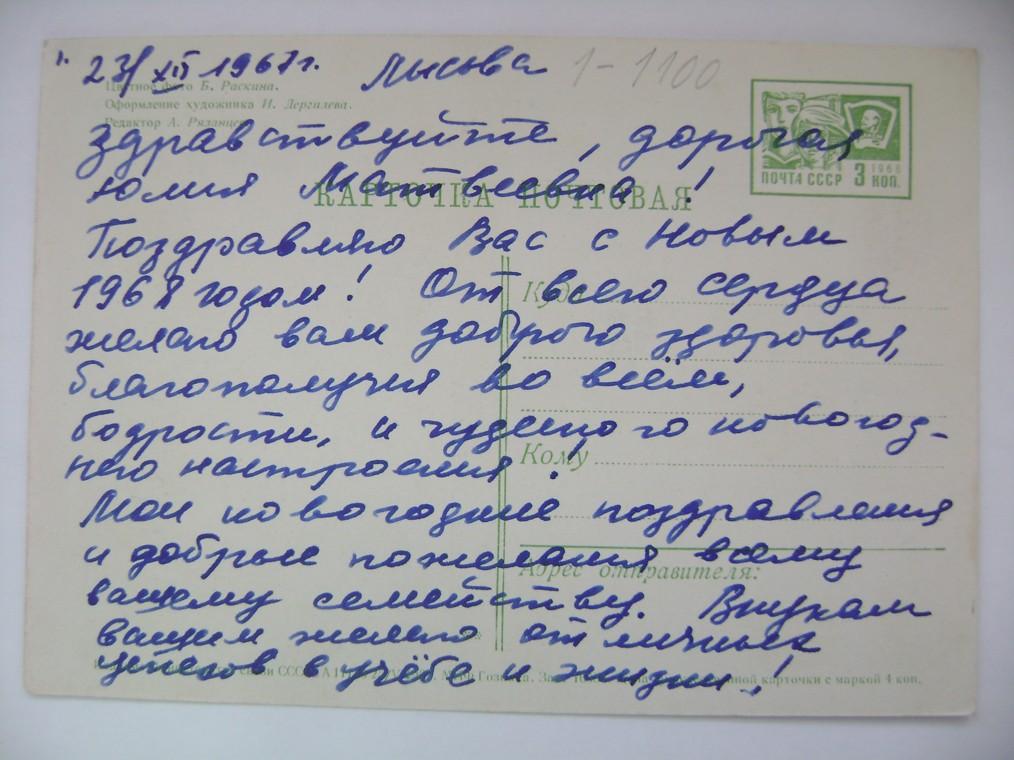 23/XII 1967 г. Лысьва 1-1100
Цветное фото Б. Раскина.
Оформление художника И. Дергилева.
Редактор А. Рязанцев
ПОЧТА СССР 3 КОП. 1966
Здравствуйте, дорогая
Юлия Матвеевна!
КАРТОЧКА ПОЧТОВАЯ
Поздравляю Вас с Новым
1968 годом! От всего сердца
Куда
желаю вам доброго здоровья,
благополучия во всём,
бодрости, и чудесного новогод-
него настроения!
Кому
Мои новогодние поздравления
и добрые пожелания всему
Адрес отправителя:
вашему семейству. Внукам
вашим желаю отличных
успехов в учёбе и жизни!
связи СССР. Гознака. карточки с маркой 4 коп.